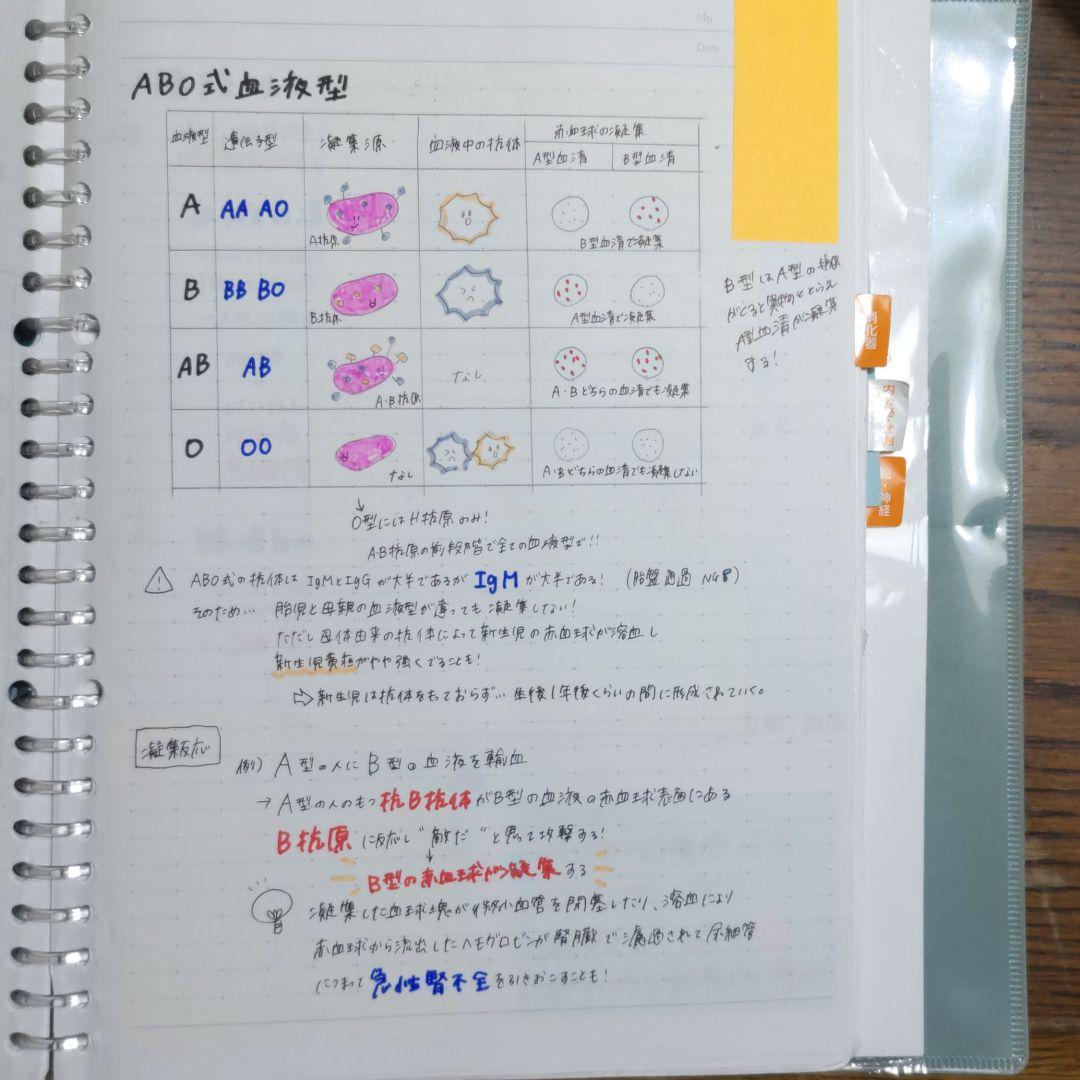 No.
Date
ABO式血液型
血液型 遺伝子型 凝集源 血液中の抗体 赤血球の凝集
A型血清 B型血清
A AA AO A抗原 B型血清で凝集
B BB BO B抗原 A型血清で凝集
AB AB A・B抗原 なし A・Bどちらの血清でも凝集
O OO なし A・Bどちらの血清でも凝集しない
B型はA型の
がくると異物ととらえ
A型血清が凝集
する!
O型にはH抗原のみ!
AB抗原の前段階で全ての血液型で!!
ABO式の抗体はIgMとIgGが大半であるがIgMが大半である! (胎盤通過NG)
そのため… 胎児と母親の血液型が違っても凝集しない!
ただし母体由来の抗体によって新生児の赤血球が溶血し
新生児黄疸がやや強くでることも!
⇨新生児は抗体をもておらず… 生後1年後くらいの間に形成されていく。
凝集反応
例) A型の人にB型の血液を輸血
→A型の人のもつ抗B抗体がB型の血液の赤血球表面にある
B抗原に反応し"敵だ"と思って攻撃する!
↓
B型の赤血球が凝集する
凝集した血球塊が微小血管を閉塞したり、溶血により
赤血球から流出したヘモグロビンが腎臓で濾過されて尿細管
につまって急性腎不全を引きおこすことも!
消化器
神経